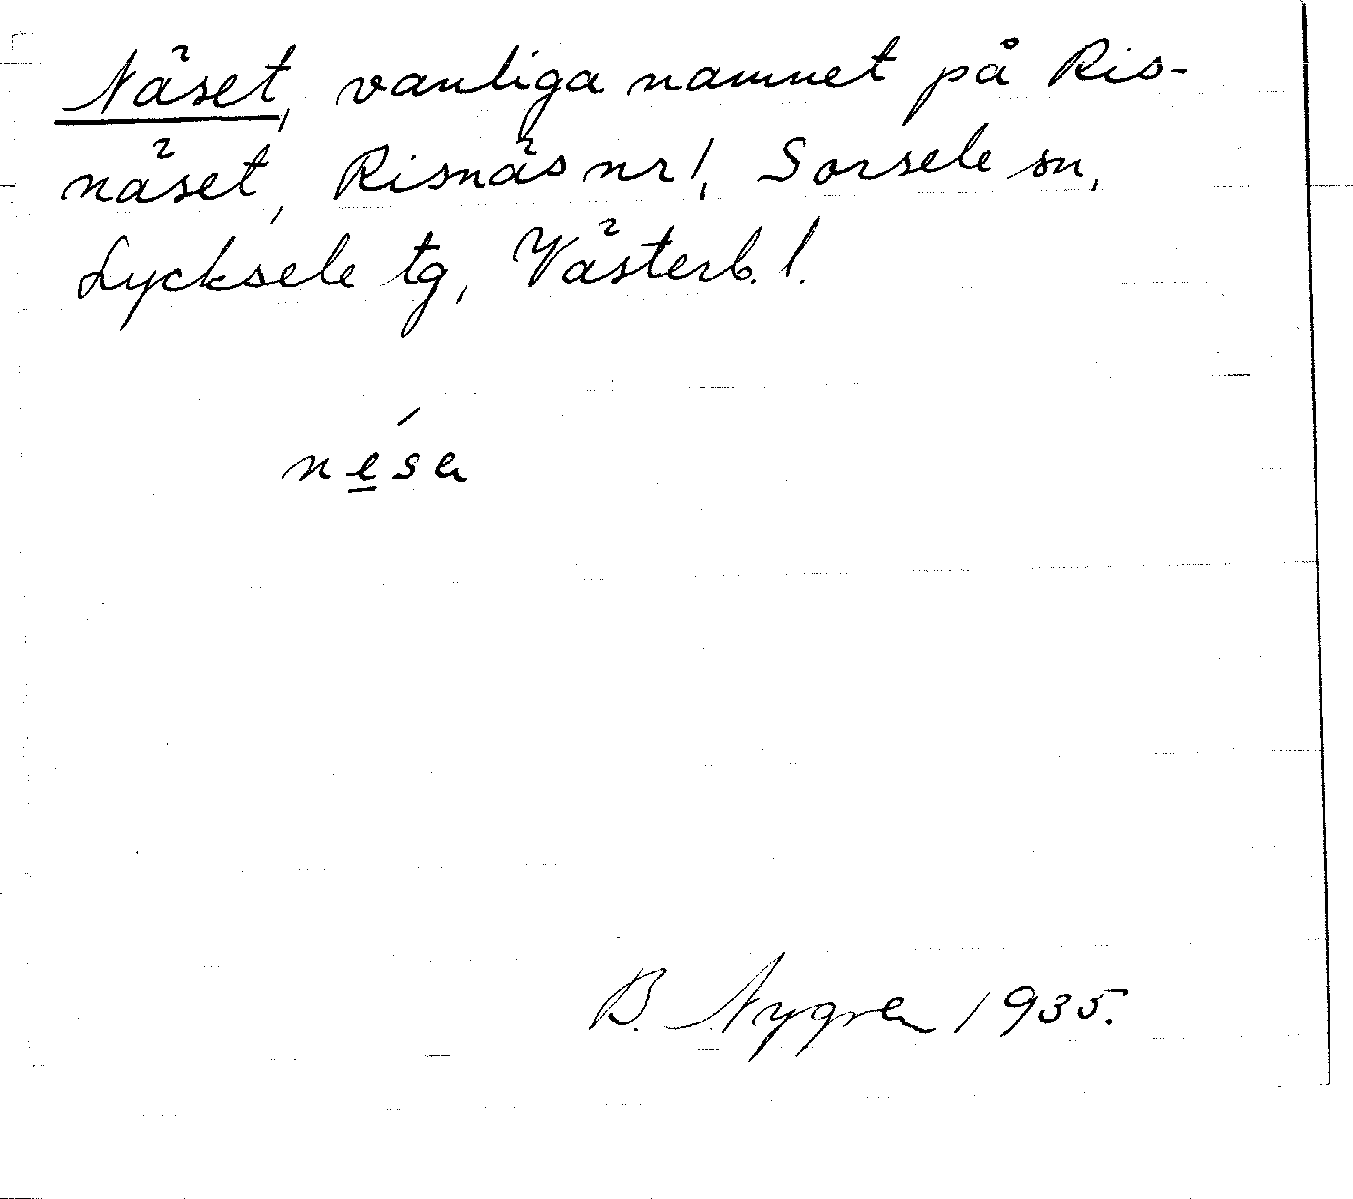 Näset, vanliga namnet på Ris-
näset, Risnäs nr 1, Sorsele sn,
Lycksele tg, Västerb. l.
né̲sa
B. Nygren 1935.